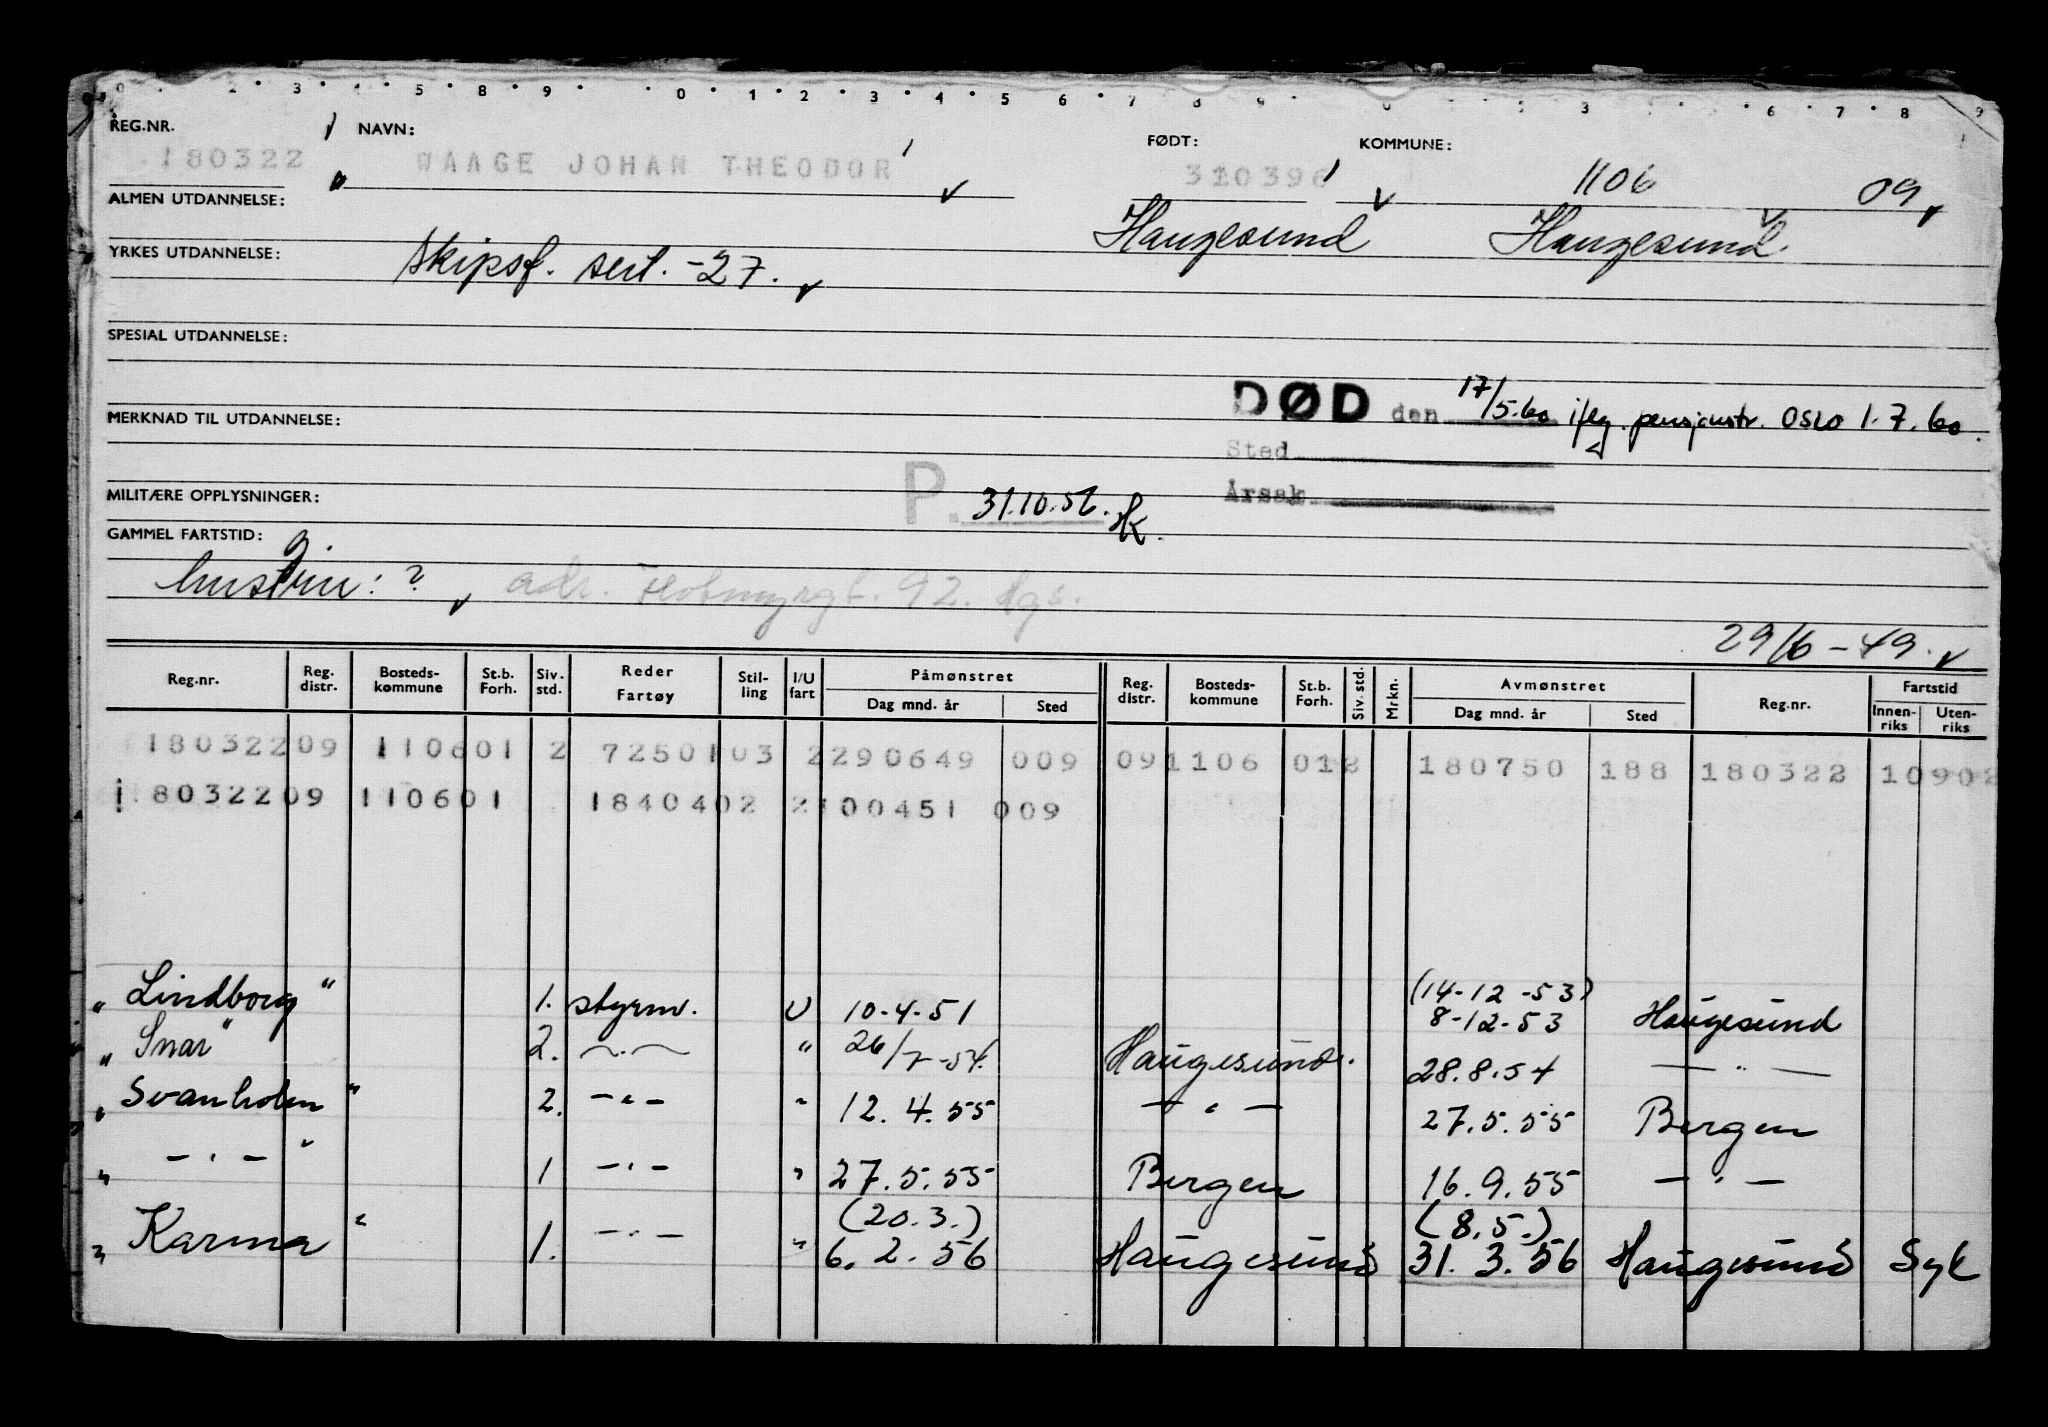 REG.NR. NAVN: FØDT: KOMMUNE:
180322 WAAGE JOHAN THEODOR 310396 1106 09
ALMEN UTDANNELSE: Haugesund Haugesund.
YRKES UTDANNELSE: Skipsf. sert. -27.
SPESIAL UTDANNELSE:
DØD den 17/5.60 iflg. pensjonstr. OSLO 1.7.60.
MERKNAD TIL UTDANNELSE:
Sted
P. 31.10.56. HK.
Årsak
MILITÆRE OPPLYSNINGER:
GAMMEL FARTSTID: g.
hustru: ? adr. Flotmyrgt. 92. Hgs.
29/6-49.
Reg.nr. Reg. distr. Bosteds-kommune St.b. Forh. Siv. std. Reder Fartøy Stil-ling I/U fart Påmønstret Dag mnd. år Sted Reg. distr. Bosteds-kommune St.b. Forh. Siv. std. Mrkn. Avmønstret Dag mnd. år Sted Reg.nr. Fartstid Innen-riks Uten-riks
180322 09 110601 2 7250103 2290649 009 091106 012 180750 188 180322 10902
180322 09 110601 1840402 2100451 009
"Lindborg" 1. styrm. U 10-4-51 (14-12-53) 8-12-53 Haugesund
"Snar" 2. -"- " 26/7-54. Haugesund. 28.8.54 -"-
"Svanholm" 2. -"- " 12.4.55 -"- 27.5.55 Bergen
" -"- " 1 -"- " 27.5.55 Bergen 16.9.55 -"-
(20.3.) (8.5.)
"Karma" 1. -"- " 6.2.56 Haugesund 31.3.56 Haugesund Syk